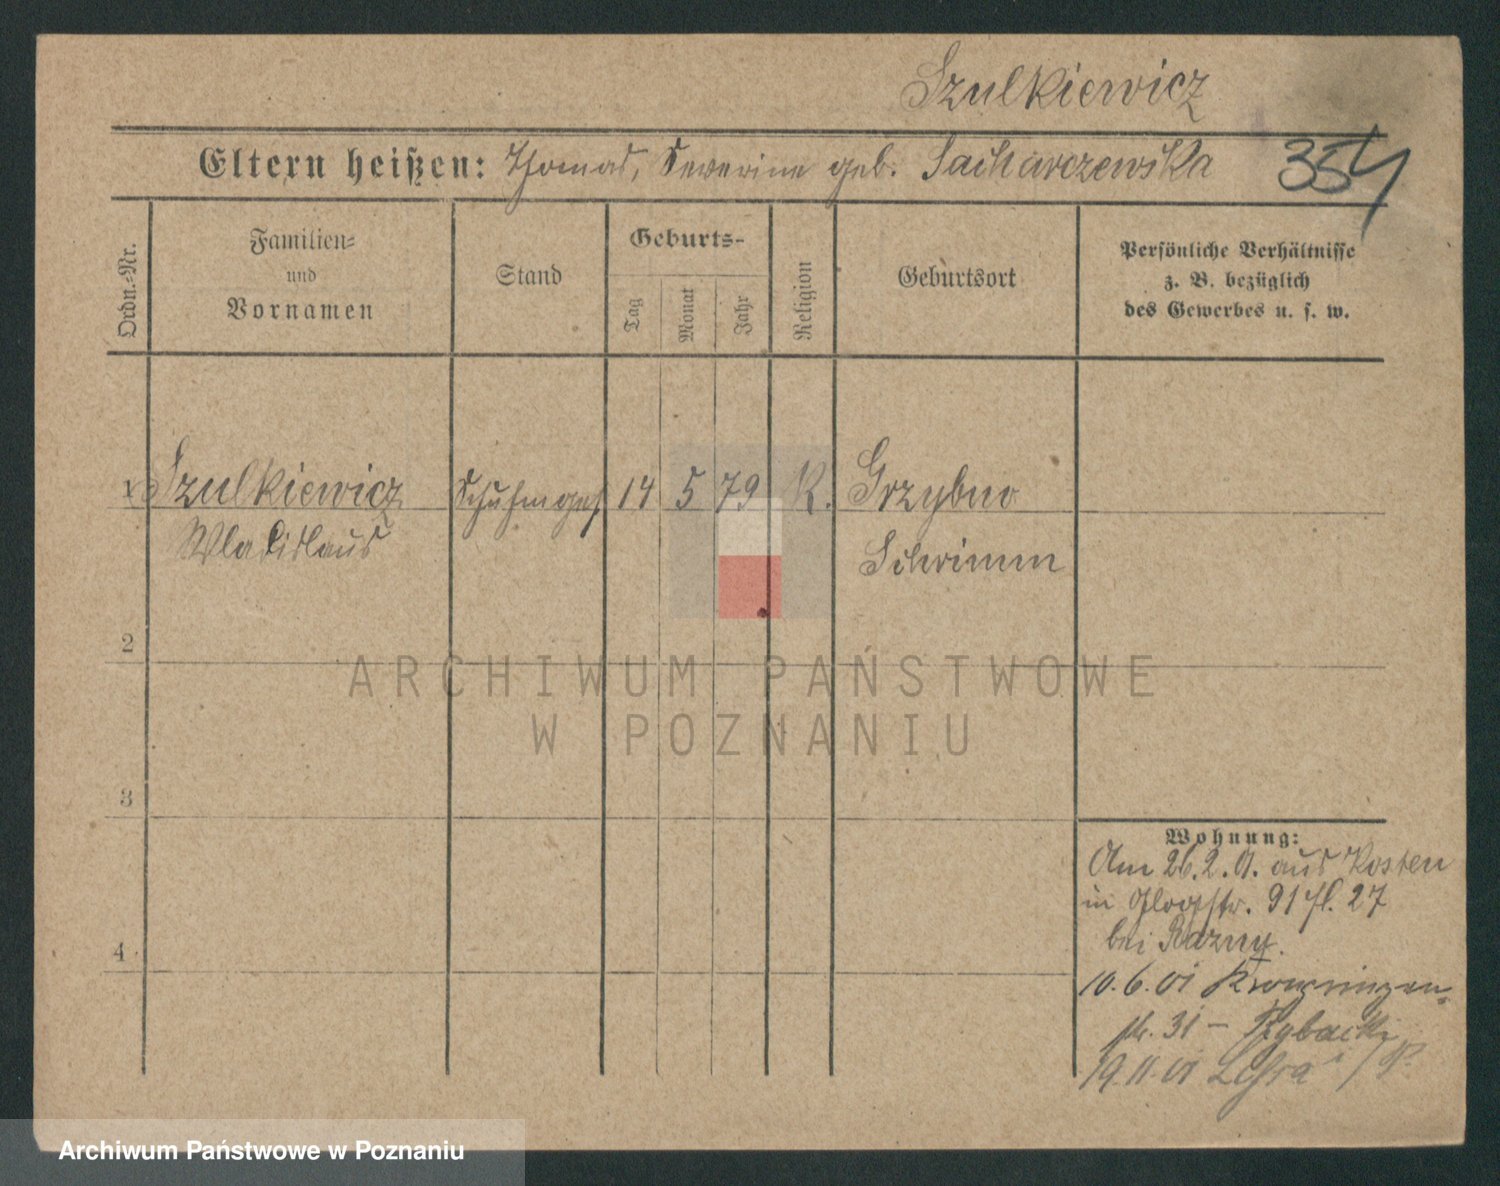 Szulkiewicz
Eltern heißen: Thomas, Severine geb. Sacharczewska 354
Ordn.-Nr.
Familien-
und
Vornamen
Stand
Geburts-
Tag
Monat
Jahr
Religion
Geburtsort
Persönliche Verhältnisse
z. B. bezüglich
des Gewerbes u. s. w.
1 Szulkiewicz Schuhmges. 14 5 79 K. Grzybno
Wladislaus Schrimm
2
3
4
Wohnung:
Am 26.2.01. aus Kosten
in 91 27
bei Razny.
10.6.01 Kronprinzen-
str. 31 – Rybacki
19.11.01
ARCHIWUM PAŃSTWOWE
W POZNANIU
Archiwum Państwowe w Poznaniu